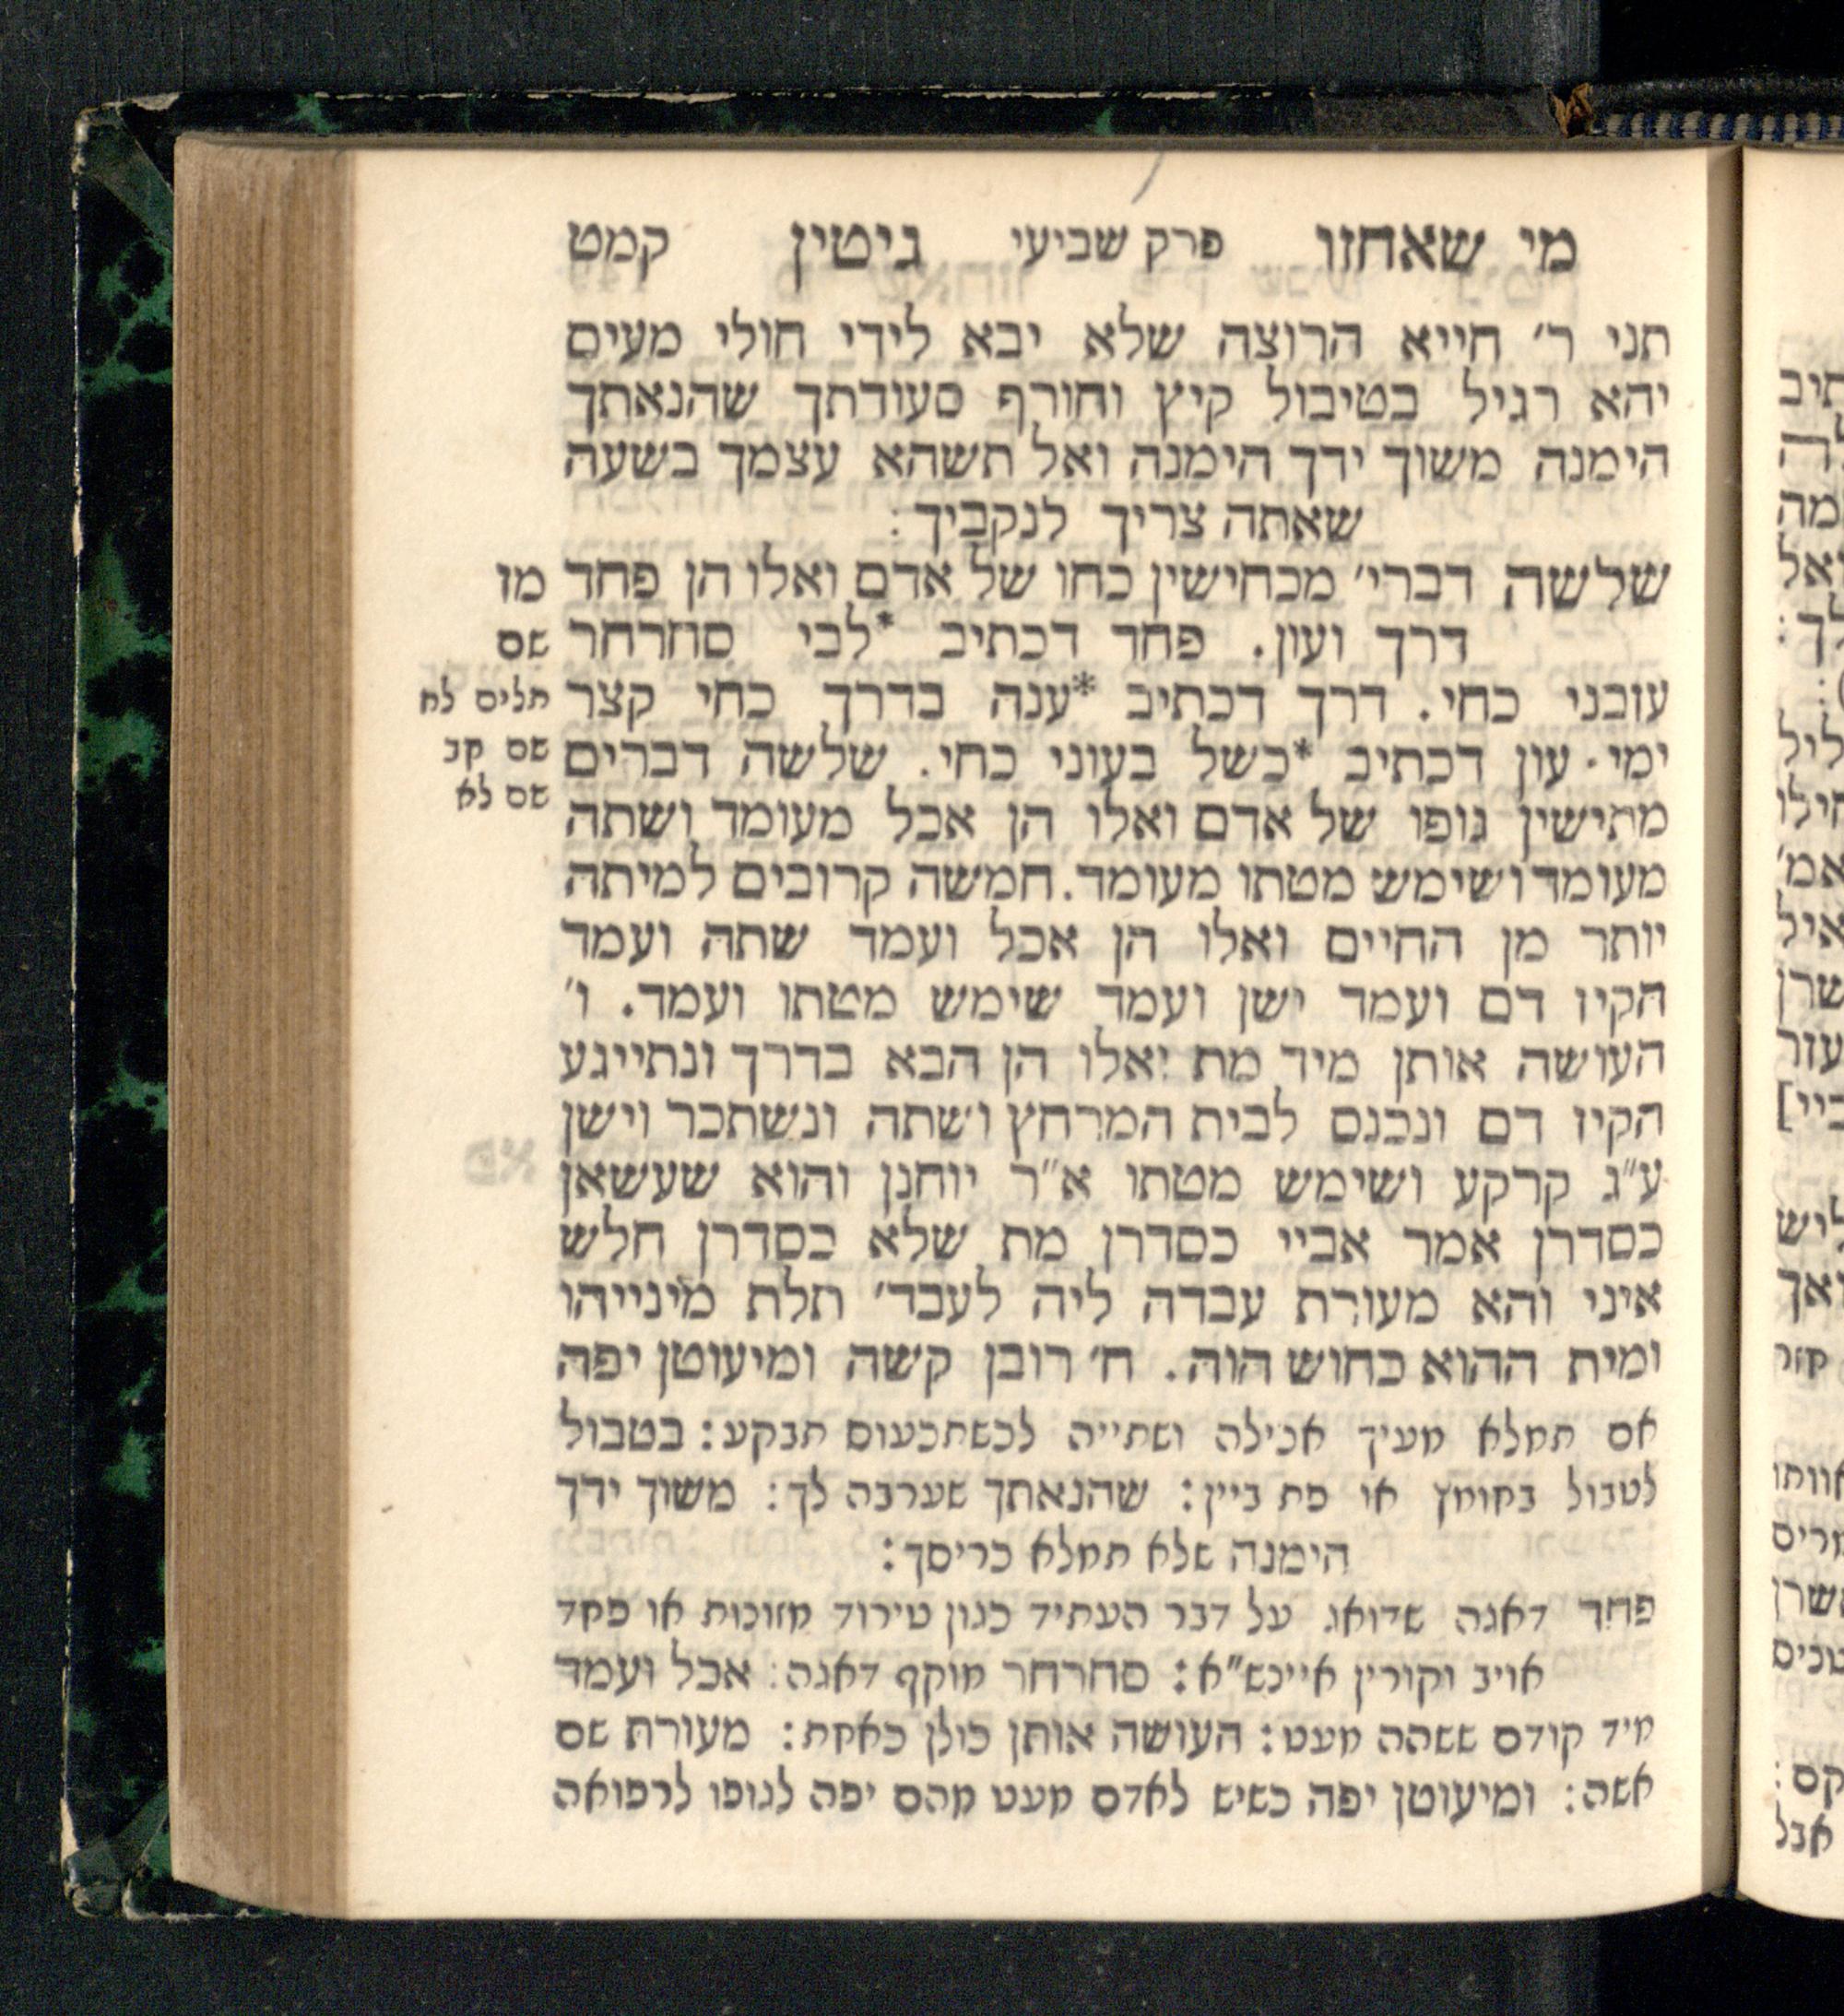 מי שאחזו פרק שביעי גיטין קמט
תני ר׳ חייא הרוצה שלא יבא לידי חולי מעים
יהא רגיל בטיבול קיץ וחורף סעודתך שהנאתך
הימנה משוך ידך הימנה ואל תשהא עצמך בשעה
שאתה צריך לנקביך:
שלשה דברי׳ מכחישין כחו של אדם ואלו הן פחד מז
דרך ועון. פחד דכתיב *לבי סחרחר שם
עזבני כחי. דרך דכתיב *ענה בדרך כחי קצר תלים לח
ימי. עון דכתיב *כשל בעוני כחי. שלשה דברים שם קב
שם לא
מתישין גופו של אדם ואלו הן אכל מעומד ושתה
מעומד ושימש מטתו מעומד. חמשה קרובים למיתה
יותר מן החיים ואלו הן אכל ועמד שתה ועמד
הקיז דם ועמד ישן ועמד שימש מטתו ועמד. ו׳
העושה אותן מיד מת ואלו הן הבא בדרך ונתייגע
הקיז דם ונכנס לבית המרחץ ושתה ונשתכר וישן
ע״ג קרקע ושימש מטתו א״ר יוחנן והוא שעשאן
כסדרן אמר אביי כסדרן מת שלא כסדרן חלש
איני והא מעורת עבדה ליה לעבד׳ תלת מינייהו
ומית ההוא כחוש הוה. ח׳ רובן קשה ומיעוטן יפה
אם תמלא מעיך אכילה ושתייה לכשתכעוס תבקע: בטבול
לטבול בחומץ או פת ביין: שהנאתך שערבה לך: משוך ידך
הימנה שלא תמלא כריסך:
פחד דאגה שדואג על דבר העתיד כגון טירוד מזונות או פחד
אויב וקורין אייכש״א: סחרחר מוקף דאגה: אכל ועמד
מיד קודם ששהה מעט: העושה אותן כולן כאחת: מעורת שם
אשה: ומיעוטן יפה כשיש לאדם מעט מהם יפה לגופו לרפואה